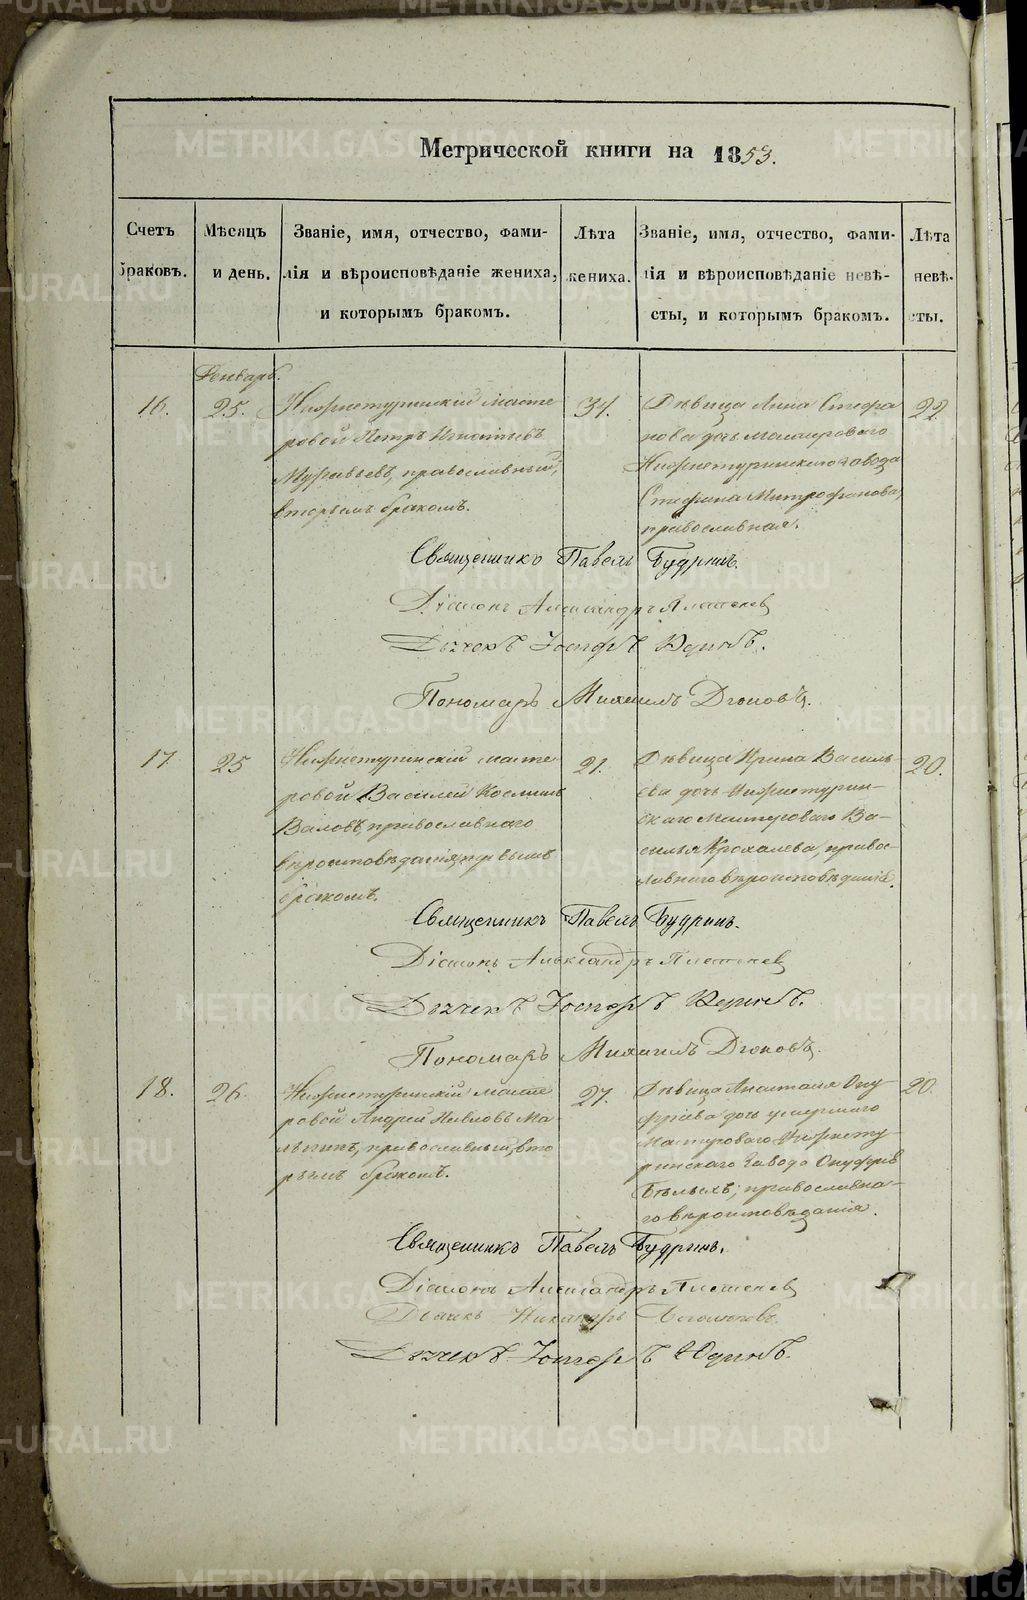 Метрической книги на 1853.
Счетъ браковъ.
Мѣсяцъ и день.
Званіе, имя, отчество, фами-
лія и вѣроисповѣданіе жениха,
и которымъ бракомъ.
Лѣта жениха.
Званіе, имя, отчество, фами-
лія и вѣроисповѣданіе невѣ-
сты, и которымъ бракомъ.
Лѣта невѣ-
сты.
Январь.
16.
25.
Нижнетуринскій масте
ровой Петръ Игнатьевъ
Муравьевъ, православный,
вторымъ бракомъ.
34.
Дѣвица Анна Стефа
нова дочь мастероваго
Нижнетуринскаго завода
Стефана Митрофанова,
православная.
22.
Священникъ Павелъ Будринъ.
Діаконъ Александръ
Дьячекъ Іосифъ Юдинъ.
Пономарь Михаилъ Дягоновъ.
17.
25
Нижнетуринскій масте
ровой Василей Косминъ
Валовъ, православнаго
вѣроисповѣданія, первымъ
бракомъ.
21.
Дѣвица Ирина Василь-
ева дочь Нижнетурин-
скаго мастероваго Ва-
силья Крохалева, право-
славнаго вѣроисповѣданія.
20.
Священникъ Павелъ Будринъ.
Діаконъ Александръ
Дьячекъ Іосифъ Юдинъ.
Пономарь Михаилъ
18.
26.
Нижнетуринскій масте
ровой Андрей Павловъ Ма-
лыгинъ, православный, вто
рымъ бракомъ.
27.
Дѣвица Анастасія Ону
фріева дочь умершаго
мастероваго Нижнету-
ринскаго завода Онуфрія
Бѣлыхъ; православна-
го вѣроисповѣданія.
20.
Священникъ Павелъ Будринъ.
Діаконъ Александръ
Дьячекъ Никандръ
Дьячекъ Іосифъ Юдинъ.
METRIKI.GASO-URAL.RU